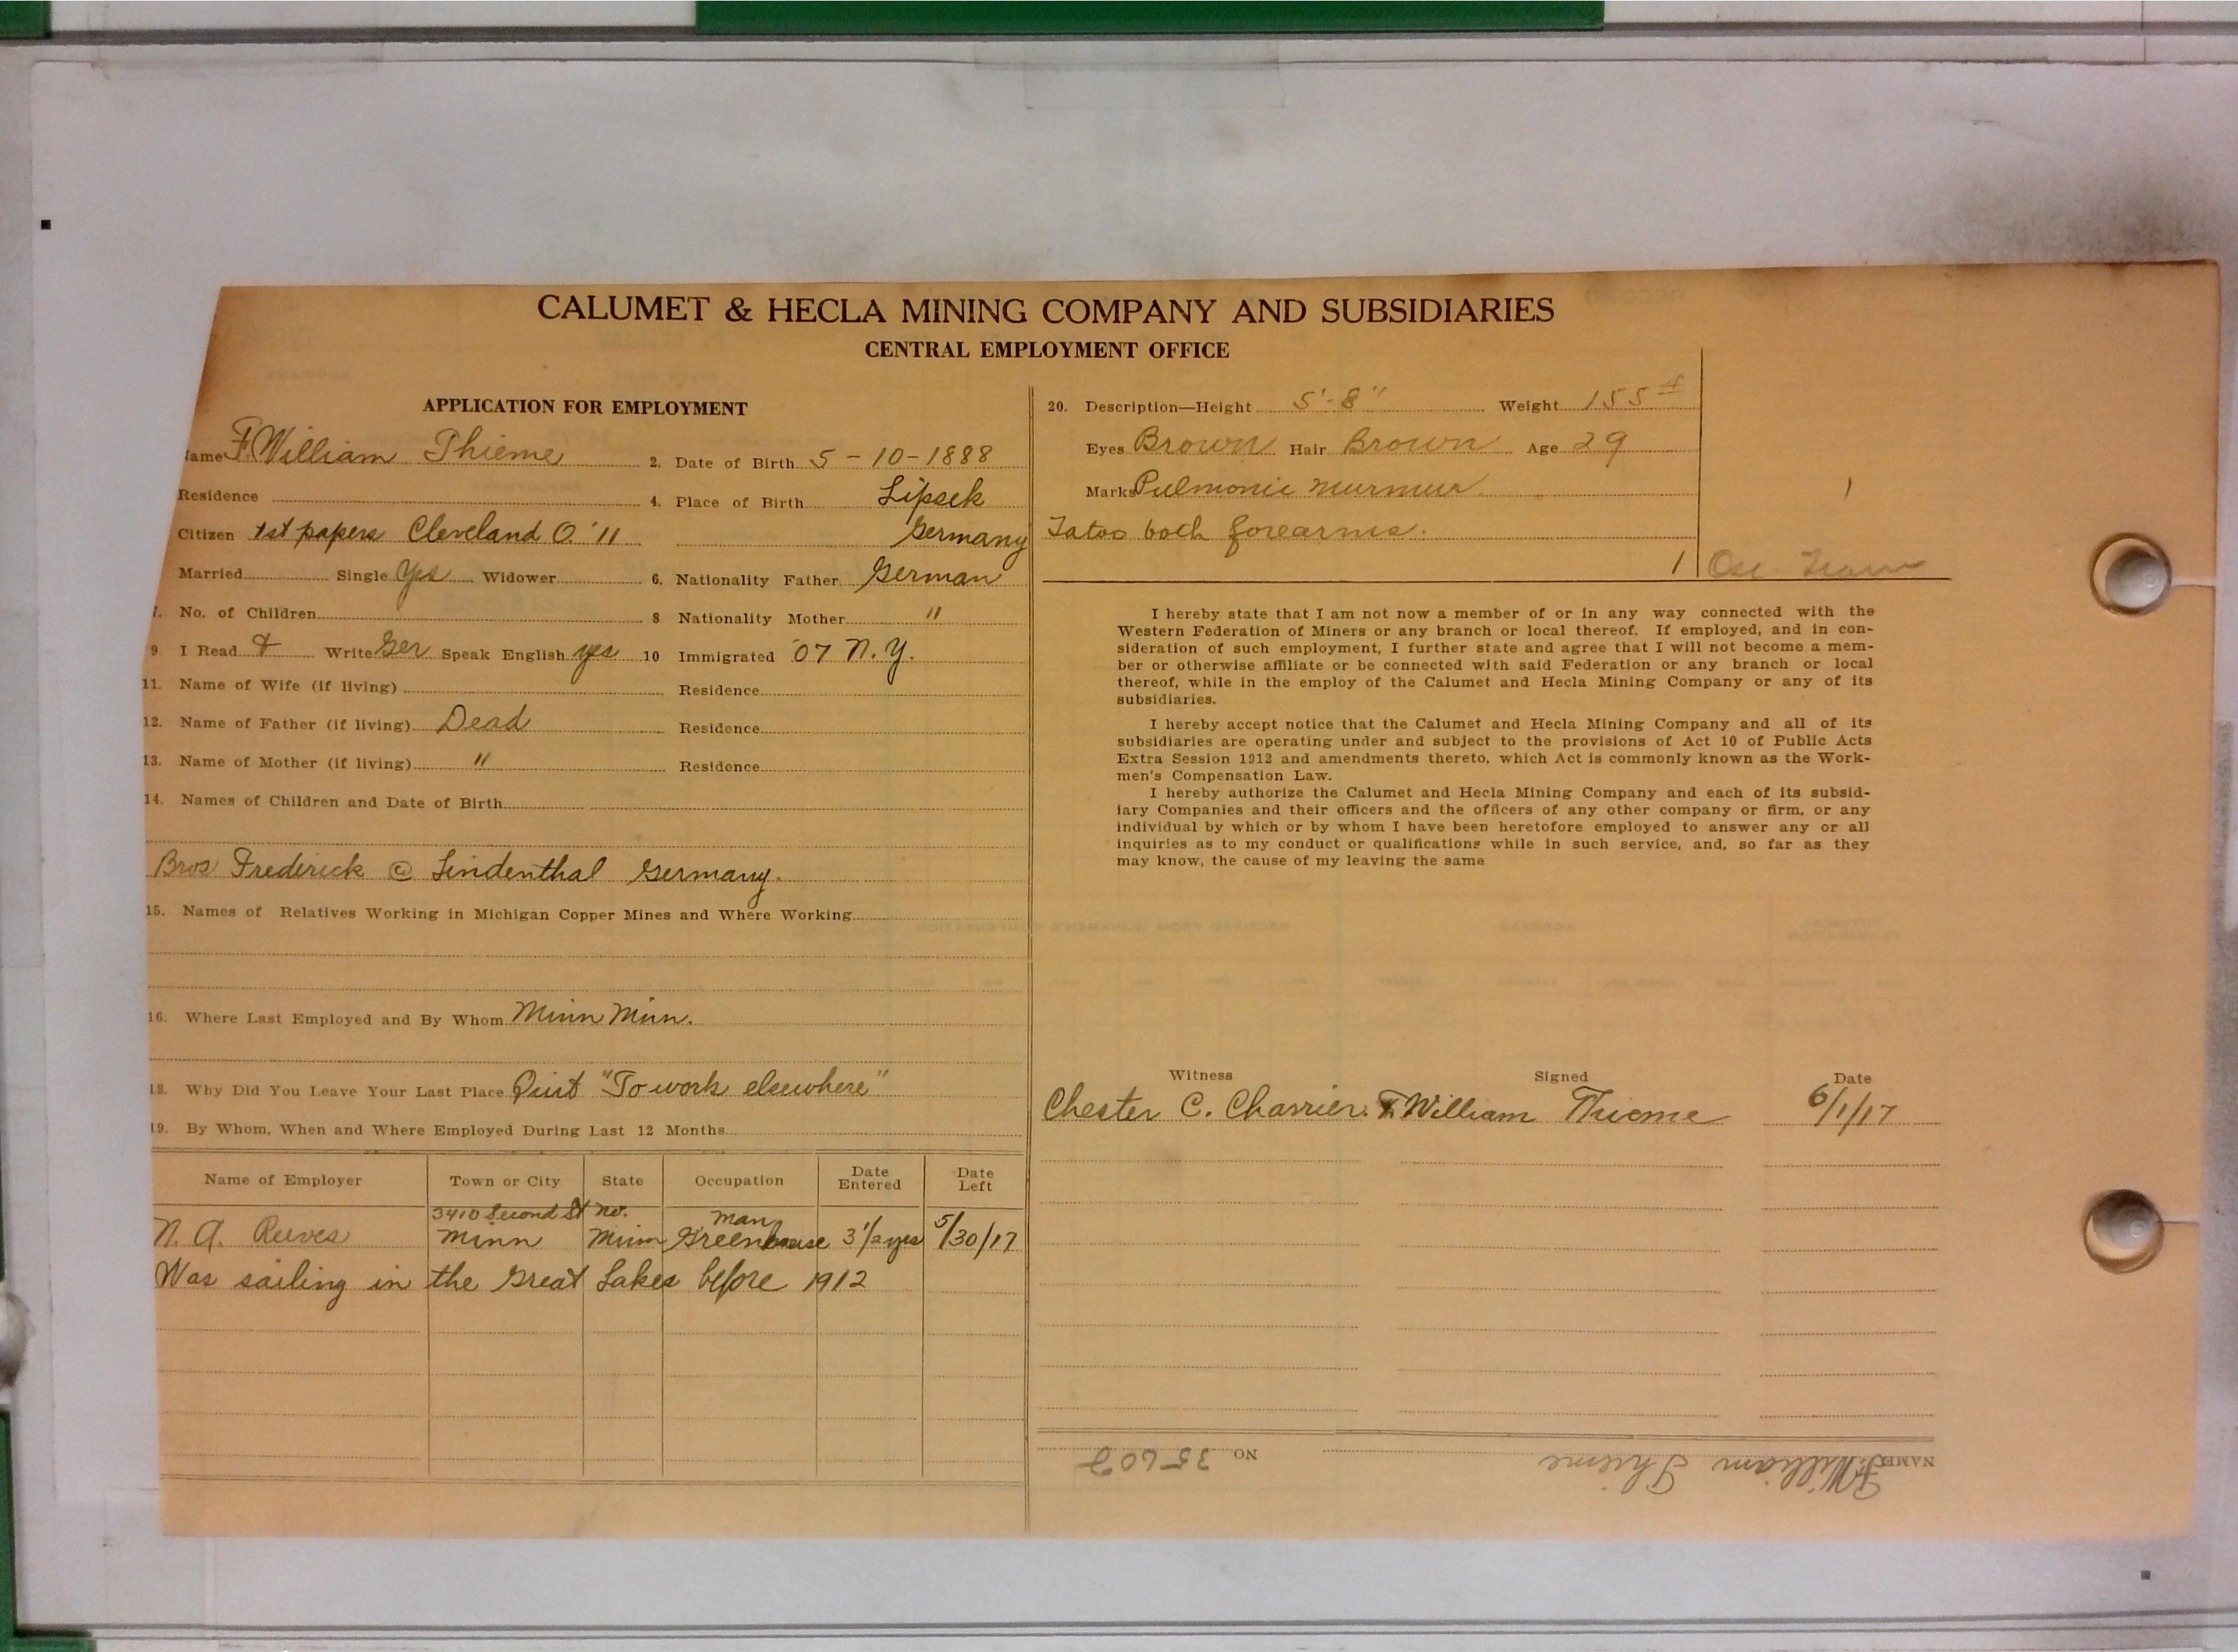 CALUMET & HECLA MINING COMPANY AND SUBSIDIARIES
CENTRAL EMPLOYMENT OFFICE
APPLICATION FOR EMPLOYMENT
Name F. William Thieme 2. Date of Birth 5-10-1888
Residence 4. Place of Birth Lipsek
Citizen 1st papers Cleveland O. '11 Germany
Married Single Yes Widower 6. Nationality Father German
7. No. of Children 8 Nationality Mother "
9 I Read & Write Ger Speak English yes 10 Immigrated '07 N.Y.
11. Name of Wife (if living) Residence
12. Name of Father (if living) Dead Residence
13. Name of Mother (if living) " Residence
14. Names of Children and Date of Birth
Bros Frederick @ Lindenthal Germany.
15. Names of Relatives Working in Michigan Copper Mines and Where Working
16. Where Last Employed and By Whom Minn Minn.
18. Why Did You Leave Your Last Place Quit "To work elsewhere"
19. By Whom, When and Where Employed During Last 12 Months
Name of Employer Town or City State Occupation Date Entered Date Left
3410 Second St No. man
N. A. Reeves Minn Minn Greenhouse 3 1/2 yrs 5/30/17
Was sailing in the Great Lakes before 1912
20. Description—Height 5'-8" Weight 155 #
Eyes Brown Hair Brown Age 29
Marks Pulmonic murmur.
Tatoo both forearms.
1
1
I hereby state that I am not now a member of or in any way connected with the
Western Federation of Miners or any branch or local thereof. If employed, and in con-
sideration of such employment, I further state and agree that I will not become a mem-
ber or otherwise affiliate or be connected with said Federation or any branch or local
thereof, while in the employ of the Calumet and Hecla Mining Company or any of its
subsidiaries.
I hereby accept notice that the Calumet and Hecla Mining Company and all of its
subsidiaries are operating under and subject to the provisions of Act 10 of Public Acts
Extra Session 1912 and amendments thereto, which Act is commonly known as the Work-
men's Compensation Law.
I hereby authorize the Calumet and Hecla Mining Company and each of its subsid-
iary Companies and their officers and the officers of any other company or firm, or any
individual by which or by whom I have been heretofore employed to answer any or all
inquiries as to my conduct or qualifications while in such service, and, so far as they
may know, the cause of my leaving the same
Witness Signed Date
Chester C. Charrier. F William Thieme 6/1/17
NAME F. William Thieme NO 35602